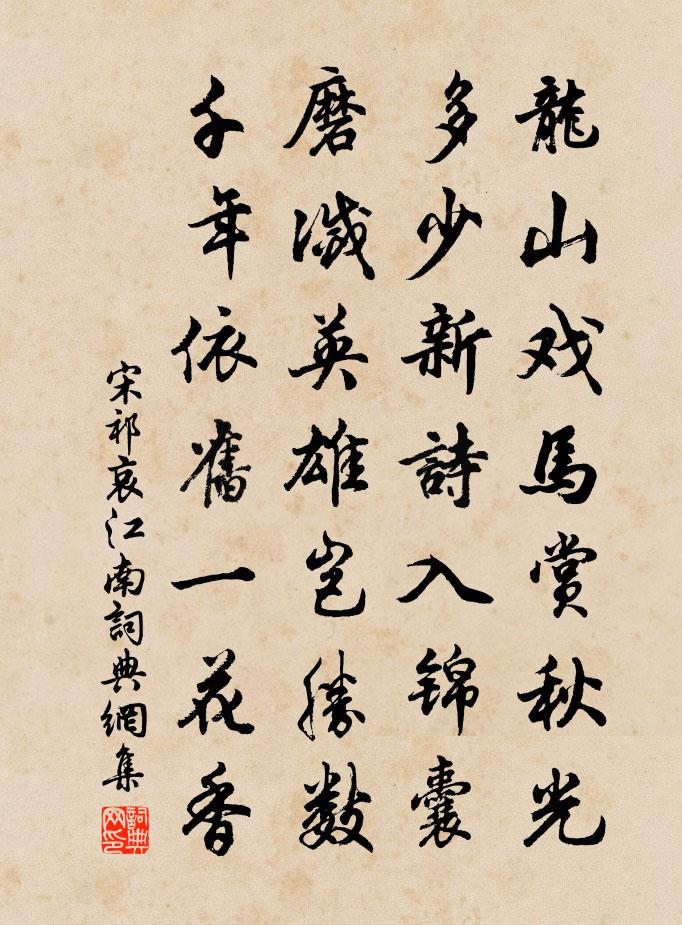 龍山戏馬赏秋光
多少新詩入锦囊
磨滅英雄岂勝数
千年依舊一花香
宋祁哀江南詞典網集
詞典网印